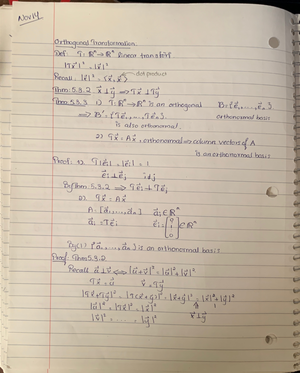 Nov 14
Orthogonal Transformation
Def: T: ℝⁿ → ℝⁿ linear transf if
|Tx⃗|² = |x⃗|²
Recall: |x⃗|² = (x⃗, x⃗) dot product
Thm 5.3.2 x⃗ ⊥ y⃗ ⟹ Tx⃗ ⊥ Ty⃗
Thm 5.3.3 1) T: ℝⁿ → ℝⁿ is an orthogonal B = {e⃗₁, ..., e⃗ₙ}
⟹ B' = {Te⃗₁, ..., Te⃗ₙ} orthonormal basis
is also orthonormal.
2) Tx⃗ = Ax⃗, orthonormal ⟹ column vectors of A
is an orthonormal basis
Proof: 1) |e⃗ᵢ| = 1
e⃗ᵢ ⊥ e⃗ⱼ
By Thm 5.3.2 ⟹ Te⃗ᵢ ⊥ Te⃗ⱼ
2) Tx⃗ = Ax⃗
A = [a⃗₁, ..., a⃗ₙ] a⃗ᵢ ∈ ℝⁿ
a⃗ᵢ = Te⃗ᵢ e⃗ᵢ = [0 1 0] ∈ ℝⁿ
By (1) {a⃗₁, ..., a⃗ₙ} is an orthonormal basis
Proof Thm 5.3.2
Recall u⃗ ⊥ v⃗ ⟺ |u⃗ + v⃗|² = |u⃗|² + |v⃗|²
Tx⃗ = u⃗ v⃗ = Ty⃗
|Tx⃗ + Ty⃗|² = |T(x⃗ + y⃗)|² = |x⃗ + y⃗|² = |x⃗|² + |y⃗|²
|u⃗|² = |Tx⃗|² = |x⃗|² x⃗ ⊥ y⃗
|v⃗|² = ... = |y⃗|²